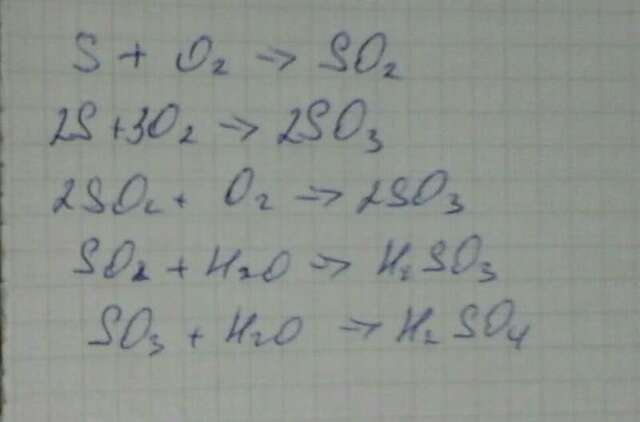 S + O₂ → SO₂
2S + 3O₂ → 2SO₃
2SO₂ + O₂ → 2SO₃
SO₂ + H₂O → H₂SO₃
SO₃ + H₂O → H₂SO₄